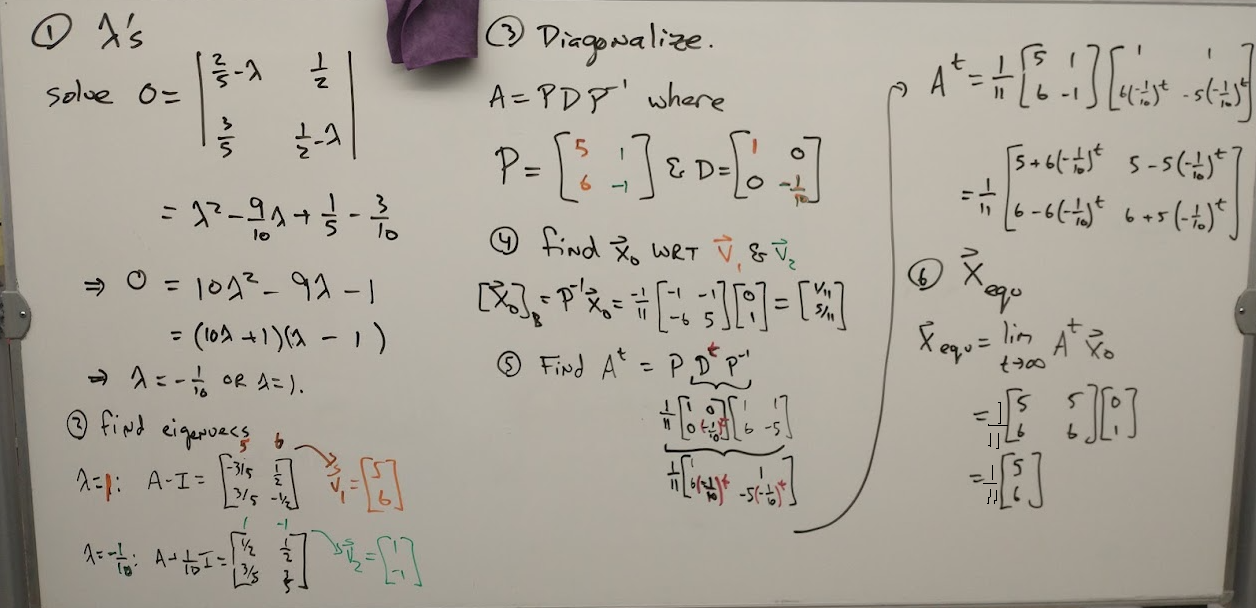 ① λ's
solve 0 = | 2/5 - λ 1/2 |
| 3/5 1/2 - λ |
= λ² - 9/10 λ + 1/5 - 3/10
⇒ 0 = 10λ² - 9λ - 1
= (10λ + 1)(λ - 1)
⇒ λ = -1/10 OR λ = 1.
② find eigenvecs
5 6
λ = 1: A - I = [ -3/5 1/2 ] → v⃗₁ = [ 5 ]
[ 3/5 -1/2 ] [ 6 ]
1 -1
λ = -1/10: A + 1/10 I = [ 1/2 1/2 ] → v⃗₂ = [ 1 ]
[ 3/5 3/5 ] [ -1 ]
③ Diagonalize.
A = PDP⁻¹ where
P = [ 5 1 ] & D = [ 1 0 ]
[ 6 -1 ] [ 0 -1/10 ]
④ find x⃗₀ WRT v⃗₁ & v⃗₂
[x⃗₀]_B = P⁻¹x⃗₀ = -1/11 [ -1 -1 ] [ 0 ] = [ 1/11 ]
[ -6 5 ] [ 1 ] [ 5/11 ]
⑤ Find Aᵗ = P Dᵗ P⁻¹
1/11 [ 1 0 ] [ 1 1 ]
[ 0 (-1/10)ᵗ ] [ 6 -5 ]
1/11 [ 1 1 ]
[ 6(-1/10)ᵗ -5(-1/10)ᵗ ]
→ Aᵗ = 1/11 [ 5 1 ] [ 1 1 ]
[ 6 -1 ] [ 6(-1/10)ᵗ -5(-1/10)ᵗ ]
= 1/11 [ 5 + 6(-1/10)ᵗ 5 - 5(-1/10)ᵗ ]
[ 6 - 6(-1/10)ᵗ 6 + 5(-1/10)ᵗ ]
⑥ x⃗equ
x⃗equ = lim t→∞ Aᵗ x⃗₀
= 1/11 [ 5 5 ] [ 0 ]
[ 6 6 ] [ 1 ]
= 1/11 [ 5 ]
[ 6 ]